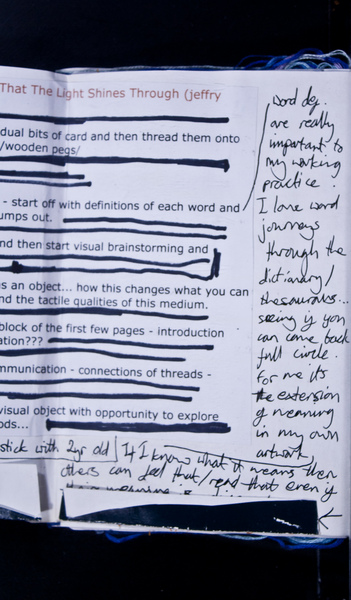 That The Light Shines Through (jeffry
dual bits of card and then thread them onto
/wooden pegs/
- start off with definitions of each word and
umps out.
nd then start visual brainstorming and
as an object... how this changes what you can
nd the tactile qualities of this medium.
block of the first few pages - introduction
ation???
mmunication - connections of threads -
visual object with opportunity to explore
ods...
word def.
are really
important to
my working
practice.
I love word
journeys
through the
dictionary/
thesauruses...
seeing if you
can come back
full circle.
for me its
the extension
of meaning
in my own
artwork
stick with 2yr old | If I know what it means then
others can feel that/read that even if